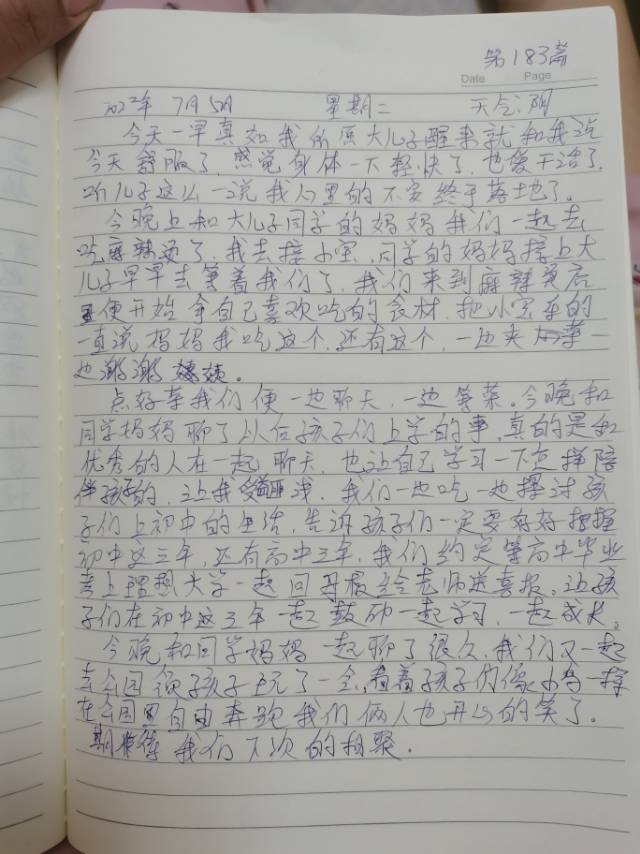 第183篇
Date Page
2022年 7月5日 星期二 天气:阴
今天一早真如我所愿大儿子醒来就和我说
今天舒服了,感觉身体一下轻快了,也爱干活了,
听儿子这么一说我心里的不安终于落地了。
今晚上和大儿子同学的妈妈我们一起去
吃麻辣烫了,我去接小宝,同学的妈妈接上大
儿子早早去等着我们了,我们来到麻辣烫店
便开始拿自己喜欢吃的食材,把小宝乐的
一直说妈妈我吃这个,还有这个,一边夹菜一
边谢谢姨姨。
点好菜我们便一边聊天,一边等菜。今晚和
同学妈妈聊了以后孩子们上学的事,真的是和
优秀的人在一起聊天,也让自己学习一下怎样陪
伴孩子的,让我受益匪浅,我们一边吃一边探讨孩
子们上初中的生活,告诉孩子们一定要好好把握
初中这三年,还有高中三年,我们约定等高中毕业
考上理想大学一起回母校给老师送喜报,让孩
子们在初中这三年一起鼓励一起学习,一起成长。
今晚和同学妈妈一起聊了很久,我们又一起
去公园领孩子玩了一会,看着孩子们像小鸟一样
在公园里自由奔跑我们俩人也开心的笑了。
期待我们下次的相聚.